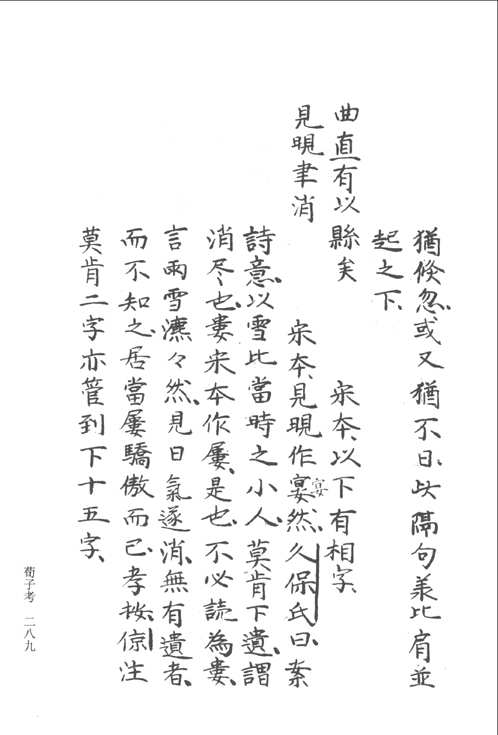 猶倏忽、或又猶不日、此隔句義比肩並
起之下、
曲直有以縣矣　宋本、以下有相字、
見晛聿消　宋本、見晛作宴然、久保氏曰、案
宴
詩意、以雪比當時之小人、莫肯下遺、謂
消尽也、婁宋本作屢、是也、不必読為婁、
言雨雪瀌々然、見日氣遂消、無有遺者、
而不知之、居當屢驕傲而已、孝按、倞注
莫肯二字亦管到下十五字、
荀子考　二八九